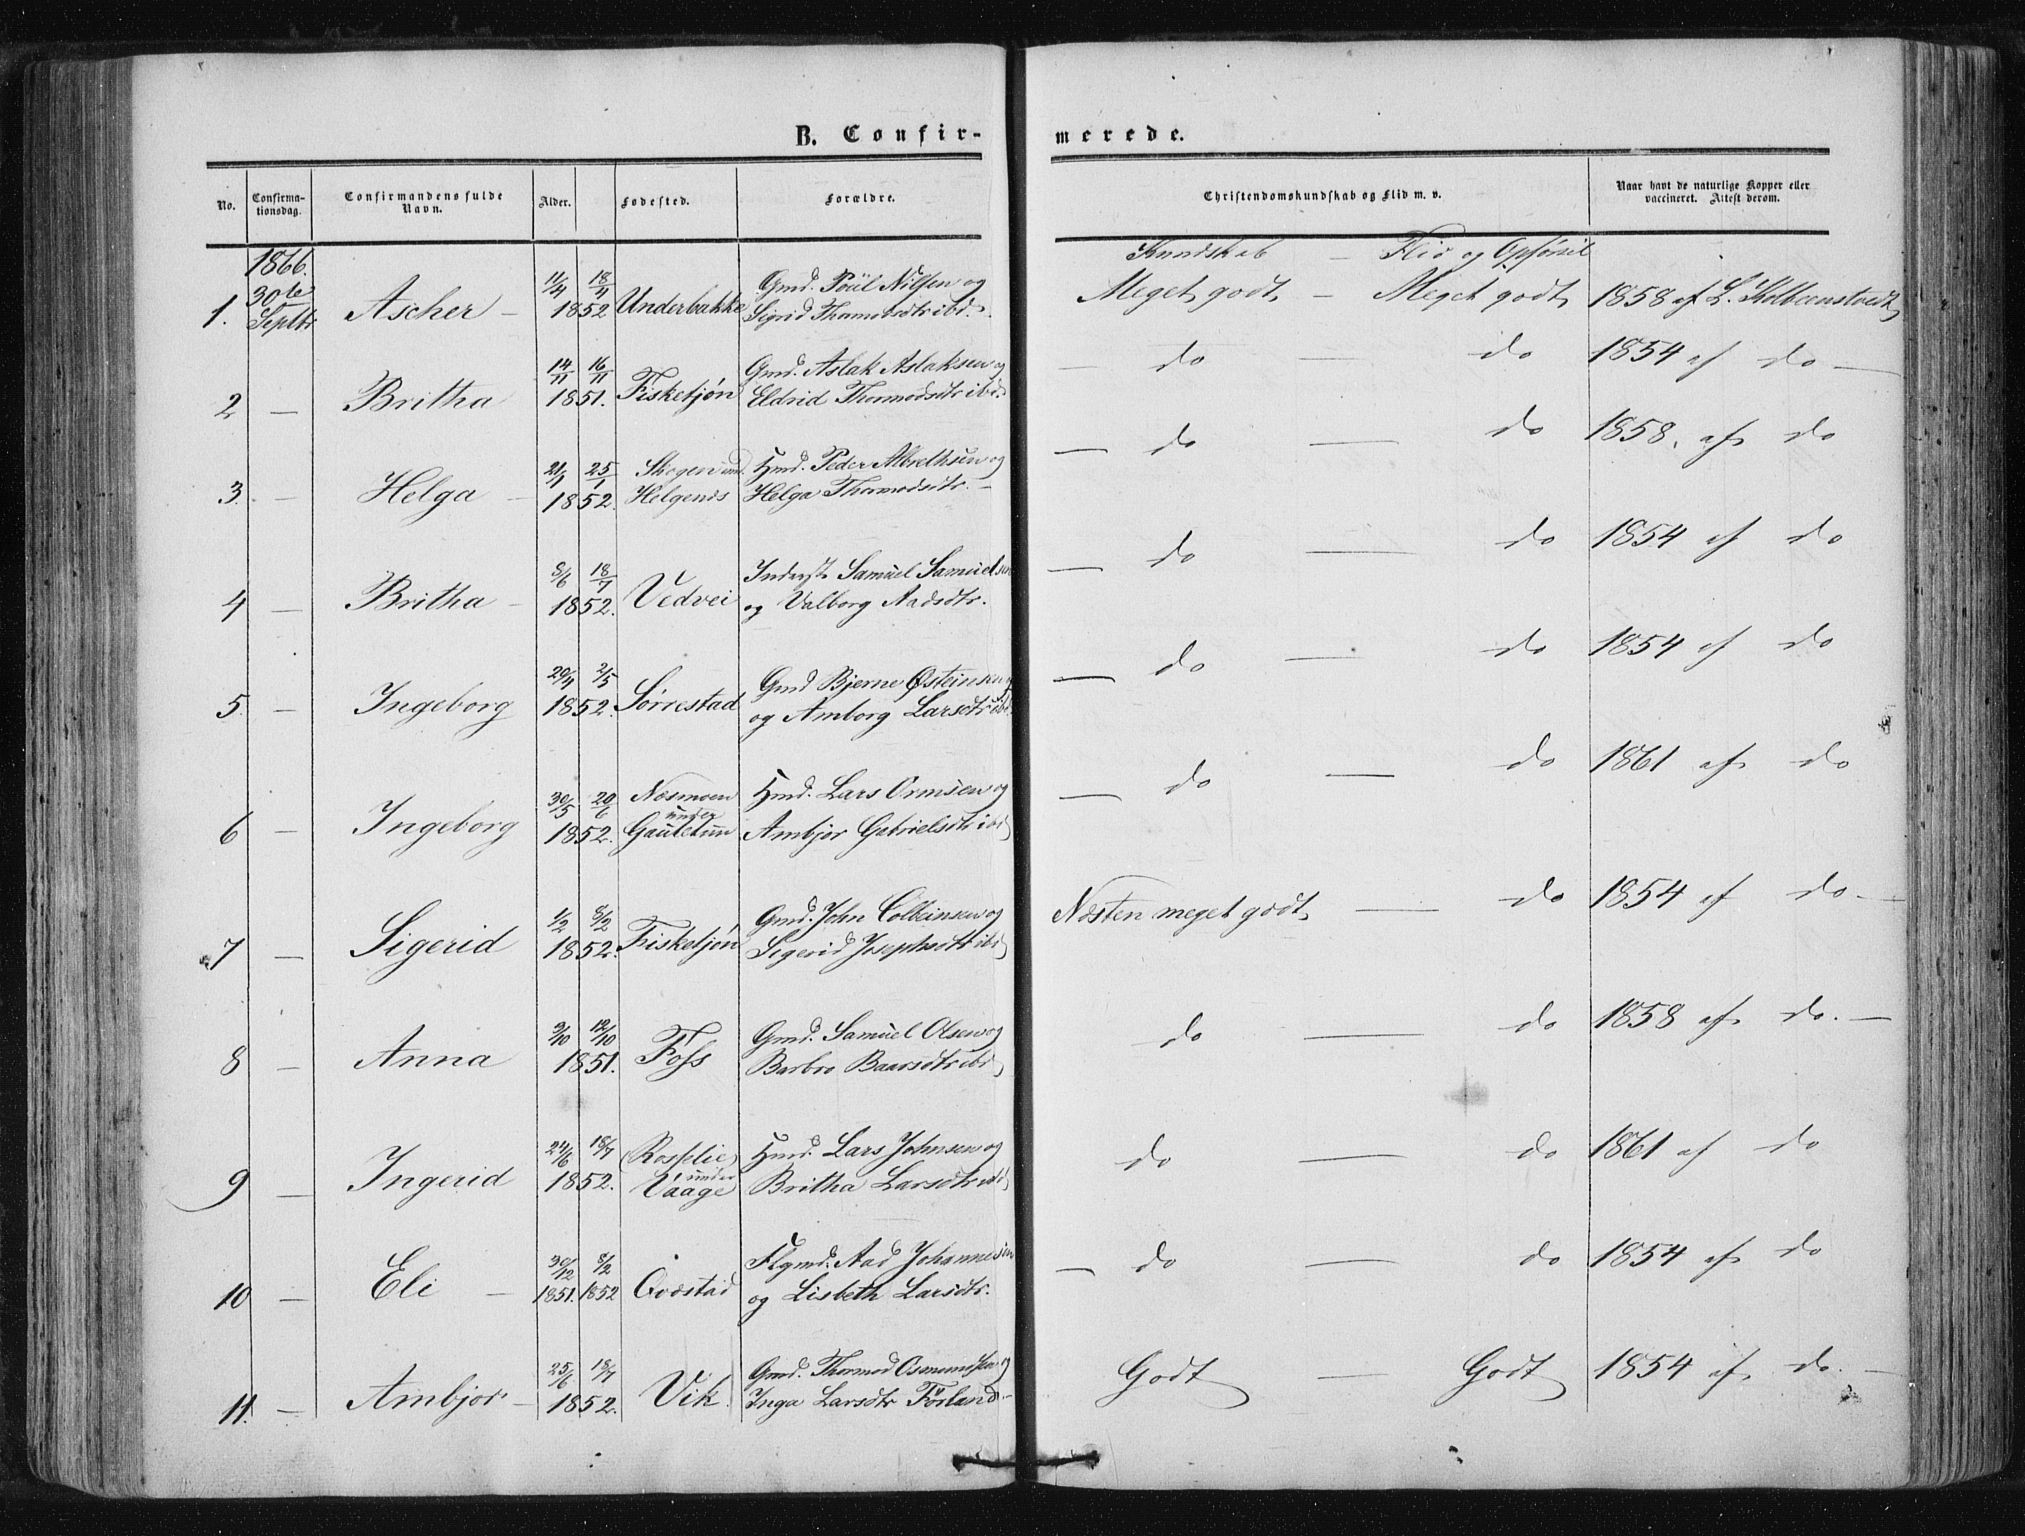 B. Confir-
merede.
No.
Confirma-
tionsdag.
Confirmandens fulde
Navn.
Alder.
Fødested.
Forældre.
Christendomskundskab og Flid m. v.
Naar havt de naturlige Kopper eller
vaccineret. Attest derom.
1866.
Kundskab – Flid og Opførsel
1. 30te Septbr Ascher – 11/4 18/4 1852 Underbakke Gmd. Poul Nilsen og
Sigrid Thormodsdtr ibd.
Meget godt – Meget godt 1858 af L. Kolbeenstvedt
2 – Britha 14/11 16/11 1851. Fisketjøn Gmd. Aslak Aslaksen og
Eldrid Thormodsdtr ibd.
– do – do 1854 af do –
3. – Helga – 21/1 25/1 1852. Skogen und. Hmd. Peder Albrethsen og
Helgenæs Helga Thormodsdtr. –
– do – do 1858. af do
4 – Britha – 8/6 18/7 1852. Vedvei Inderst Samuel Samuelsen
og Valborg Aadsdtr.
– do – do 1854 af do
5. – Ingeborg 20/4 2/5 1852. Sørrestad Gmd Bjerne Østeinsen
og Amborg Larsdtr ibd.
– do – do 1854 af do
6 – Ingeborg 30/5 20/6 1852. Næsmoen Hmd. Lars Ormsen og
under
Gautetun Ambjor Gabrielsdtr ibd
– do – do 1861 af do
7 – Sigerid 1/2 8/2 1852. Fisketjøn Gmd. John Colbeinsen og
Sigerid Josephsdtr ibd
Næsten meget godt – do 1854 af do. –
8 – Anna 9/10 12/10 1851. Foss Gmd. Samuel Olsen og
Barbro Baarsdtr ibd
do – do 1858 af do. –
9 – Ingerid 24/6 18/7 1852. Rosselie Hmd. Lars Johnsen og
under
Vaage Britha Larsdtr ibd
do – do 1861 af do
10 – Eli – 30/12 1851. 8/2 1852 Qvæstad Flgmd. Aad Johannesen
og Lisbeth Larsdtr.
– do – do 1854 af do
11. – Ambjor – 25/6 18/7 1852. Vik Gmd. Thormod Osmundsen og
Inga Larsdtr Førland –
Godt – Godt 1854 af do. –